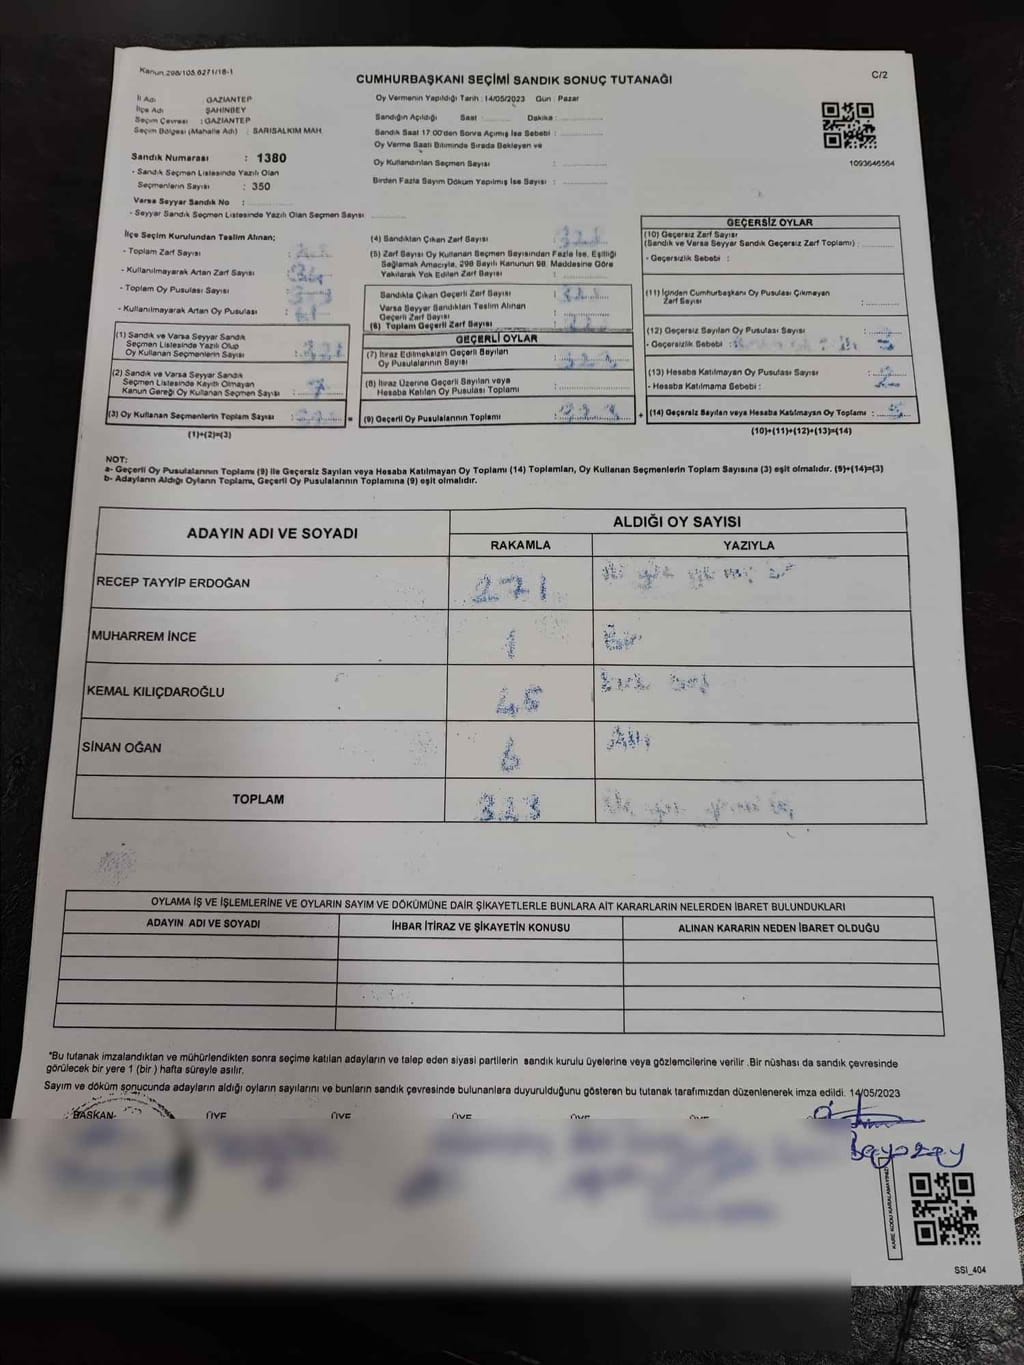 Kanun.298/105.6271/18-1
CUMHURBAŞKANI SEÇİMİ SANDIK SONUÇ TUTANAĞI
C/2
İl Adı : GAZİANTEP
İlçe Adı : ŞAHİNBEY
Seçim Çevresi : GAZİANTEP
Seçim Bölgesi (Mahalle Adı) : SARISALKIM MAH.
Sandık Numarası : 1380
- Sandık Seçmen Listesinde Yazılı Olan
Seçmenlerin Sayısı : 350
Varsa Seyyar Sandık No :
- Seyyar Sandık Seçmen Listesinde Yazılı Olan Seçmen Sayısı
Oy Vermenin Yapıldığı Tarih : 14/05/2023 Gün : Pazar
Sandığın Açıldığı Saat : Dakika :
Sandık Saat 17:00'den Sonra Açılmış İse Sebebi :
Oy Verme Saati Bitiminde Sırada Bekleyen ve
Oy Kullandırılan Seçmen Sayısı :
Birden Fazla Sayım Döküm Yapılmış İse Sayısı :
1093646564
İlçe Seçim Kurulundan Teslim Alınan;
- Toplam Zarf Sayısı :
- Kullanılmayarak Artan Zarf Sayısı :
- Toplam Oy Pusulası Sayısı :
- Kullanılmayarak Artan Oy Pusulası :
(1) Sandık ve Varsa Seyyar Sandık
Seçmen Listesinde Yazılı Olup
Oy Kullanan Seçmenlerin Sayısı :
(2) Sandık ve Varsa Seyyar Sandık
Seçmen Listesinde Kayıtlı Olmayan
Kanun Gereği Oy Kullanan Seçmen Sayısı : 7
(3) Oy Kullanan Seçmenlerin Toplam Sayısı :
(1)+(2)=(3)
(4) Sandıktan Çıkan Zarf Sayısı : 328
(5) Zarf Sayısı Oy Kullanan Seçmen Sayısından Fazla İse, Eşitliği
Sağlamak Amacıyla, 298 Sayılı Kanunun 98. Maddesine Göre
Yakılarak Yok Edilen Zarf Sayısı :
Sandıkta Çıkan Geçerli Zarf Sayısı : 328
Varsa Seyyar Sandıktan Teslim Alınan
Geçerli Zarf Sayısı :
(6) Toplam Geçerli Zarf Sayısı :
GEÇERLİ OYLAR
(7) İtiraz Edilmeksizin Geçerli Sayılan
Oy Pusulasının Sayısı : 323
(8) İtiraz Üzerine Geçerli Sayılan veya
Hesaba Katılan Oy Pusulası Toplamı :
= (9) Geçerli Oy Pusulalarının Toplamı : 323
GEÇERSİZ OYLAR
(10) Geçersiz Zarf Sayısı
(Sandık ve Varsa Seyyar Sandık Geçersiz Zarf Toplamı) :
- Geçersizlik Sebebi :
(11) İçinden Cumhurbaşkanı Oy Pusulası Çıkmayan
Zarf Sayısı :
(12) Geçersiz Sayılan Oy Pusulası Sayısı :
- Geçersizlik Sebebi :
(13) Hesaba Katılmayan Oy Pusulası Sayısı : 2
- Hesaba Katılmama Sebebi :
+ (14) Geçersiz Sayılan veya Hesaba Katılmayan Oy Toplamı : 5
(10)+(11)+(12)+(13)=(14)
NOT:
a- Geçerli Oy Pusulalarının Toplamı (9) ile Geçersiz Sayılan veya Hesaba Katılmayan Oy Toplamı (14) Toplamları, Oy Kullanan Seçmenlerin Toplam Sayısına (3) eşit olmalıdır. (9)+(14)=(3)
b- Adayların Aldığı Oyların Toplamı, Geçerli Oy Pusulalarının Toplamına (9) eşit olmalıdır.
ADAYIN ADI VE SOYADI
ALDIĞI OY SAYISI
RAKAMLA YAZIYLA
RECEP TAYYİP ERDOĞAN 271
MUHARREM İNCE 1 Bir
KEMAL KILIÇDAROĞLU 45 kırk beş
SİNAN OĞAN 6 Altı
TOPLAM 323
OYLAMA İŞ VE İŞLEMLERİNE VE OYLARIN SAYIM VE DÖKÜMÜNE DAİR ŞİKAYETLERLE BUNLARA AİT KARARLARIN NELERDEN İBARET BULUNDUKLARI
ADAYIN ADI VE SOYADI İHBAR İTİRAZ VE ŞİKAYETİN KONUSU ALINAN KARARIN NEDEN İBARET OLDUĞU
*Bu tutanak imzalandıktan ve mühürlendikten sonra seçime katılan adayların ve talep eden siyasi partilerin sandık kurulu üyelerine veya gözlemcilerine verilir .Bir nüshası da sandık çevresinde
görülecek bir yere 1 (bir ) hafta süreyle asılır.
Sayım ve döküm sonucunda adayların aldığı oyların sayılarını ve bunların sandık çevresinde bulunanlara duyurulduğunu gösteren bu tutanak tarafımızdan düzenlenerek imza edildi. 14/05/2023
BAŞKAN ÜYE ÜYE ÜYE ÜYE ÜYE
KARE KODU KARALAMAYINIZ
SSI_404